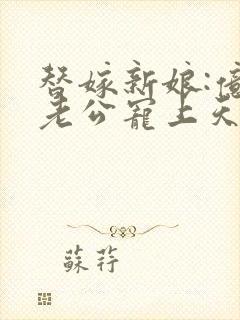 替嫁新娘:億
老公寵上天
蘇荇